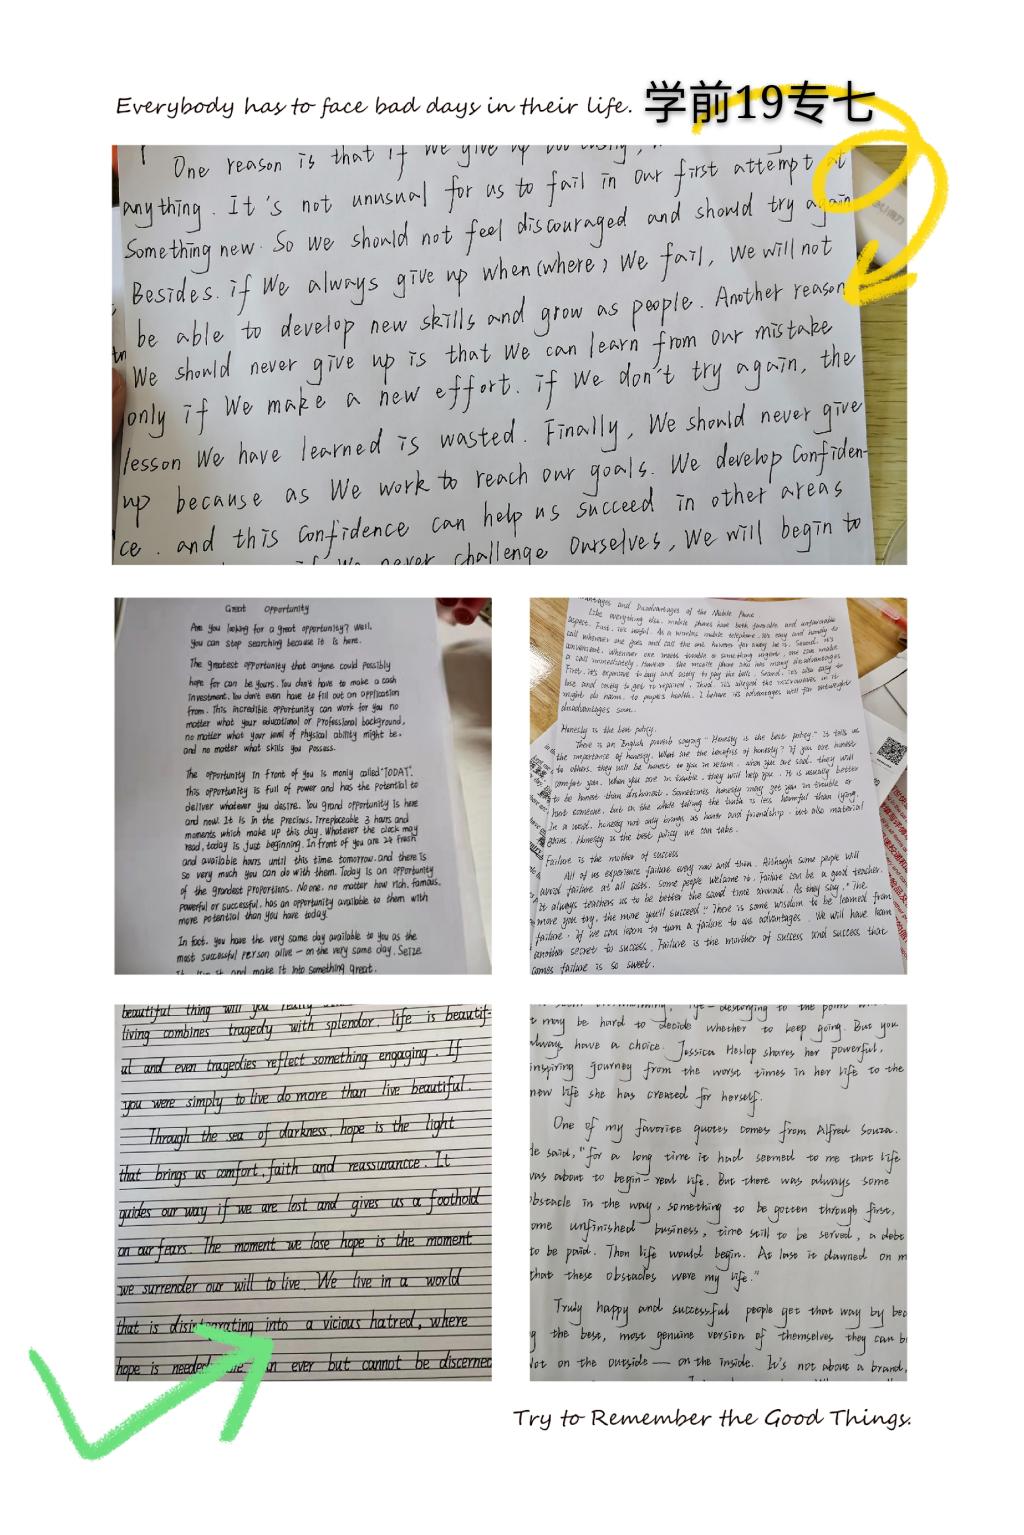 Everybody has to face bad days in their life.
学前19专七
One reason is that if we give up too easily,
anything. It's not unusual for us to fail in our first attempt at
Something new. So we should not feel discouraged and should try again
Besides. if We always give up when(where) We fail, We will not
be able to develop new skills and grow as people. Another reason
We should never give up is that We can learn from our mistake
only if We make a new effort. if We don't try again, the
lesson We have learned is wasted. Finally, We should never give
up because as We work to reach our goals. We develop Confiden-
ce. and this Confidence can help us succeed in other areas
if We never challenge Ourselves, We will begin to
Great Opportunity
Are you looking for a great opportunity? Well.
you can stop searching because it is here.
The greatest opportunity that anyone could possibly
hope for can be yours. You don't have to make a cash
investment. You don't even have to fill out an application
from. This incredible opportunity can work for you no
matter what your educational or Professional background,
no matter what your level of Physical ability might be.
and no matter what skills you Possess.
The opportunity in front of you is monly called "TODAY".
This opportunity is full of power and has the Potential to
deliver whatever you desire. You grand opportunity is here
and now. It is in the Precious. Irreplaceable 3 hours and
moments which make up this day. Whatever the clock may
read, today is just beginning. In front of you are 24 fresh
and available hours until this time tomorrow. and there is
so very much you can do with them. Today is an opportunity
of the grandest proportions. No one. no matter how rich, famous.
Powerful or successful. has an opportunity available to them with
more Potential than you have today.
In fact. you have the very same day available to you as the
most successful Person alive — on the very same day. Seize
it and make it into something great.
Advantages and Disadvantages of the Mobile Phone
Like everything else, mobile phones have both favorable and unfavorable
aspect. First, it's helpful. As a wireless mobile telephone. It's easy and handy to
call wherever one goes and call the one however far away he is. Second, it's
convenient. Whenever one meets trouble or something urgent, one can make
a call immediately. However, the mobile phone also has many disadvantages
First, it's expensive to buy and costly to pay the bills. Second, it's also easy to
lose and costly to get it repaired. Third, it's alleged the microwaves in it
might do harm to people's health. I believe its advantages will far outweight
disadvantages soon.
Honesty is the best policy.
There is an English proverb saying "Honesty is the best policy." It tells us
the importance of honesty. What are the benefits of honesty? If you are honest
to others, they will be honest to you in return. When you are sad, they will
comfort you. When you are in trouble, they will help you. It is usually better
to be honest than dishonest. Sometimes honesty may get you in trouble or
hurt someone, but on the whole telling the truth is less harmful than lying.
In a word, honesty not only brings us honor and friendship, but also material
gains. Honesty is the best policy we can take.
Failure is the mother of success
All of us experience failure every now and then. Although some people will
avoid failure at all costs. Some people welcome it. Failure can be a good teacher.
It always teachers us to be better the second time around. As they say, "The
more you try, the more you'll succeed!" There is some wisdom to be learned from
failure. If we can learn to turn a failure to our advantages. We will have learn
another secret to success. Failure is the morther of success and success that
comes failure is so sweet.
beautiful thing will you really
living combines tragedy with splendor. life is beautif-
ul and even tragedies reflect something engaging. If
you were simply to live do more than live beautiful.
Through the sea of darkness, hope is the light
that brings us comfort, faith and reassurancce. It
guides our way if we are lost and gives us a foothold
on our fears. The moment we lose hope is the moment
we surrender our will to live. We live in a world
that is disintegrating into a vicious hatred, where
hope is needed than ever but cannot be discerned
life- destorying to the point
may be hard to decide whether to keep going. But you
always have a choice. Jessica Heslop shares her powerful,
inspiring journey from the worst times in her life to the
new life she has created for herself.
One of my favorite quotes comes from Alfred Souza.
He said, "for a long time it had seemed to me that life
was about to begin- real life. But there was always some
obstacle in the way, something to be gotten through first,
some unfinished business, time still to be served, a debt
to be paid. Then life would begin. At lase it dawned on m
that these obstacles were my life."
Truly happy and successful people get that way by bec
g the best, most genuine version of themselves they can b
Not on the outside — on the inside. It's not about a brand,
Try to Remember the Good Things.